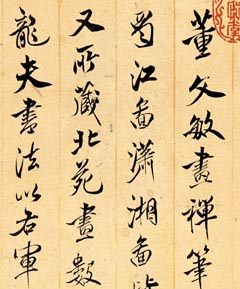 董文敏畫禪筆
蜀江圖瀟湘圖皆
又所藏北苑畫數
龍夫書法以右軍